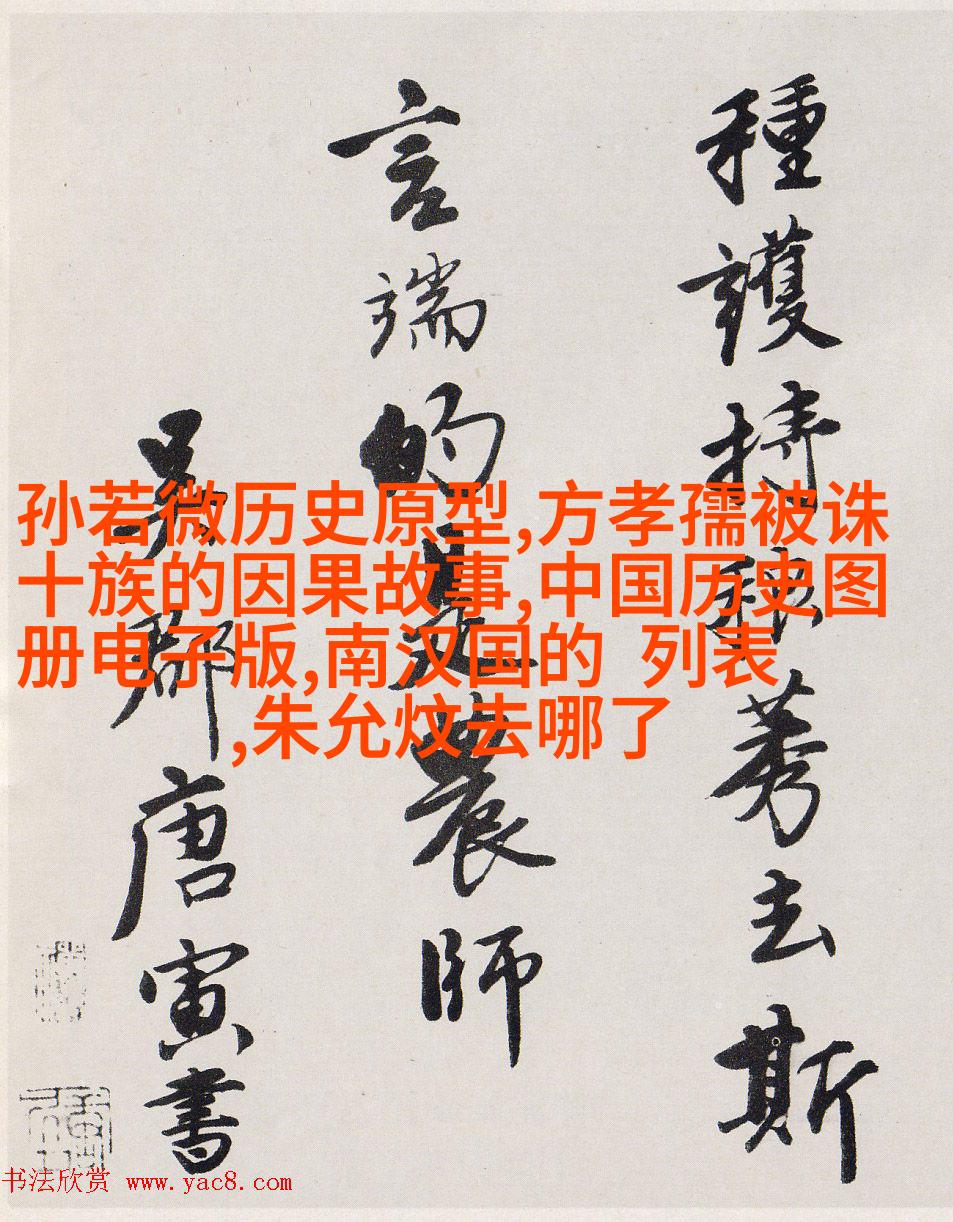 種護持稂莠去斯
言端的是農師
吳郡唐寅書
孙若微历史原型,方孝孺被诛
十族的因果故事,中国历史图
册电子版,南汉国的 列表
,朱允炆去哪了
书法欣赏 www.yac8.com